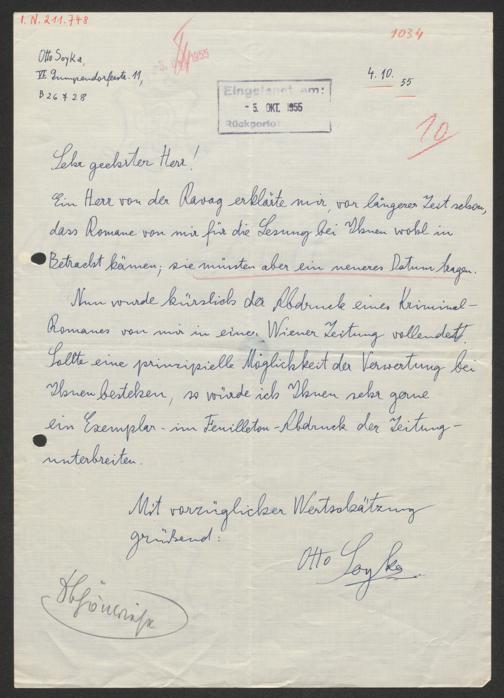 I.N. 211.748
1034
Otto Soyka,
VI. Gumpendorferstr. 11,
B 26 4 28
1955
4.10.55
Eingelangt am:
- 5. OKT. 1955
Rückporto:
10
Sehr geehrter Herr!
Ein Herr von der Ravag erklärte mir, vor längerer Zeit schon,
dass Romane von mir für die Lesung bei Ihnen wohl in
Betracht kämen; sie müssten aber ein neueres Datum tragen.
Nun wurde kürzlich der Abdruck eines Kriminal-
Romanes von mir in einer Wiener Zeitung vollendet.
Sollte eine prinzipielle Möglichkeit der Verwertung bei
Ihnen bestehen, so würde ich Ihnen sehr gerne
ein Exemplar - im Feuilleton-Abdruck der Zeitung -
unterbreiten.
Mit vorzüglicher Wertschätzung
grüßend:
Otto Soyka